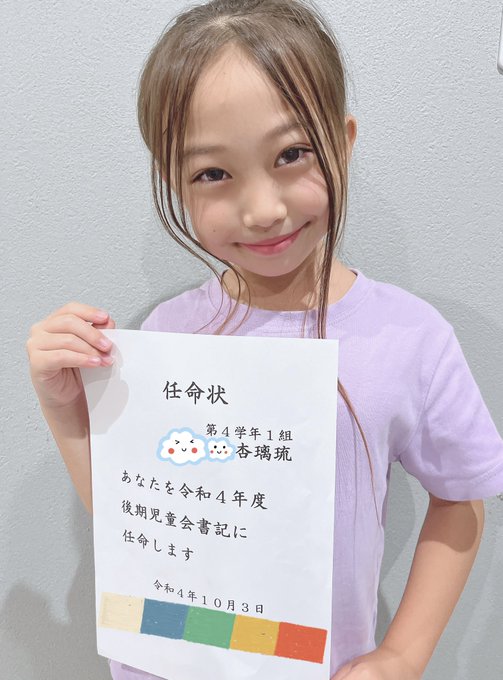 任命状
第４学年１組
杏璃琉
あなたを令和４年度
後期児童会書記に
任命します
令和４年１０月３日